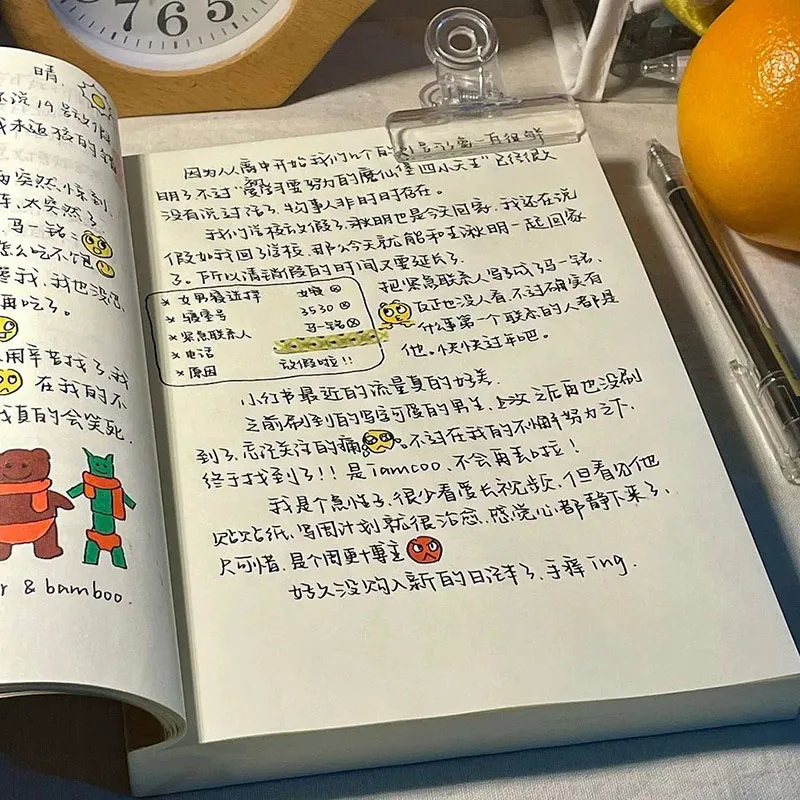 7 6 5
晴.
还说19号放假
突然,惊到
太突然了
马一铭
怎么吃不饱
我,我也没
再吃了.
用辛苦找了,我
在我的不
我真的会笑死.
r & bamboo.
因为从高中开始我们几个的
明了不过“要努力的魔仙堡四小天王”已经很久
没有说过话了.物事人非时时存在.
我们学校放假了,湫明也是今天回家,我还在说
假如我回了学校,那么今天就能和王湫明一起回家
了.所以请销假的时间又要延长了.
* 女男寝选择 女寝 ⊗
* 寝室号 3530 ⊗
* 紧急联系人 马一铭 ⊗
* 电话
* 原因 放假啦!!
把紧急联系人写成了马一铭,
反正也没人看.不过确实有
什么事第一个联系的人都是
他。快快过年吧。
小红书最近的流量真的好差.
之前刷到的写字可爱的男生,上次之后再也没刷
到了,忘记关注的痛 。不过在我的不懈努力之下,
终于找到了!!是iamcoo.不会再丢啦!
我是个急性子,很少看爱长视频,但看见他
贴贴纸,写周计划就很治愈.感觉心都静下来了,
只可惜.是个周更博主
好久没购入新的日记本了,手痒ing.